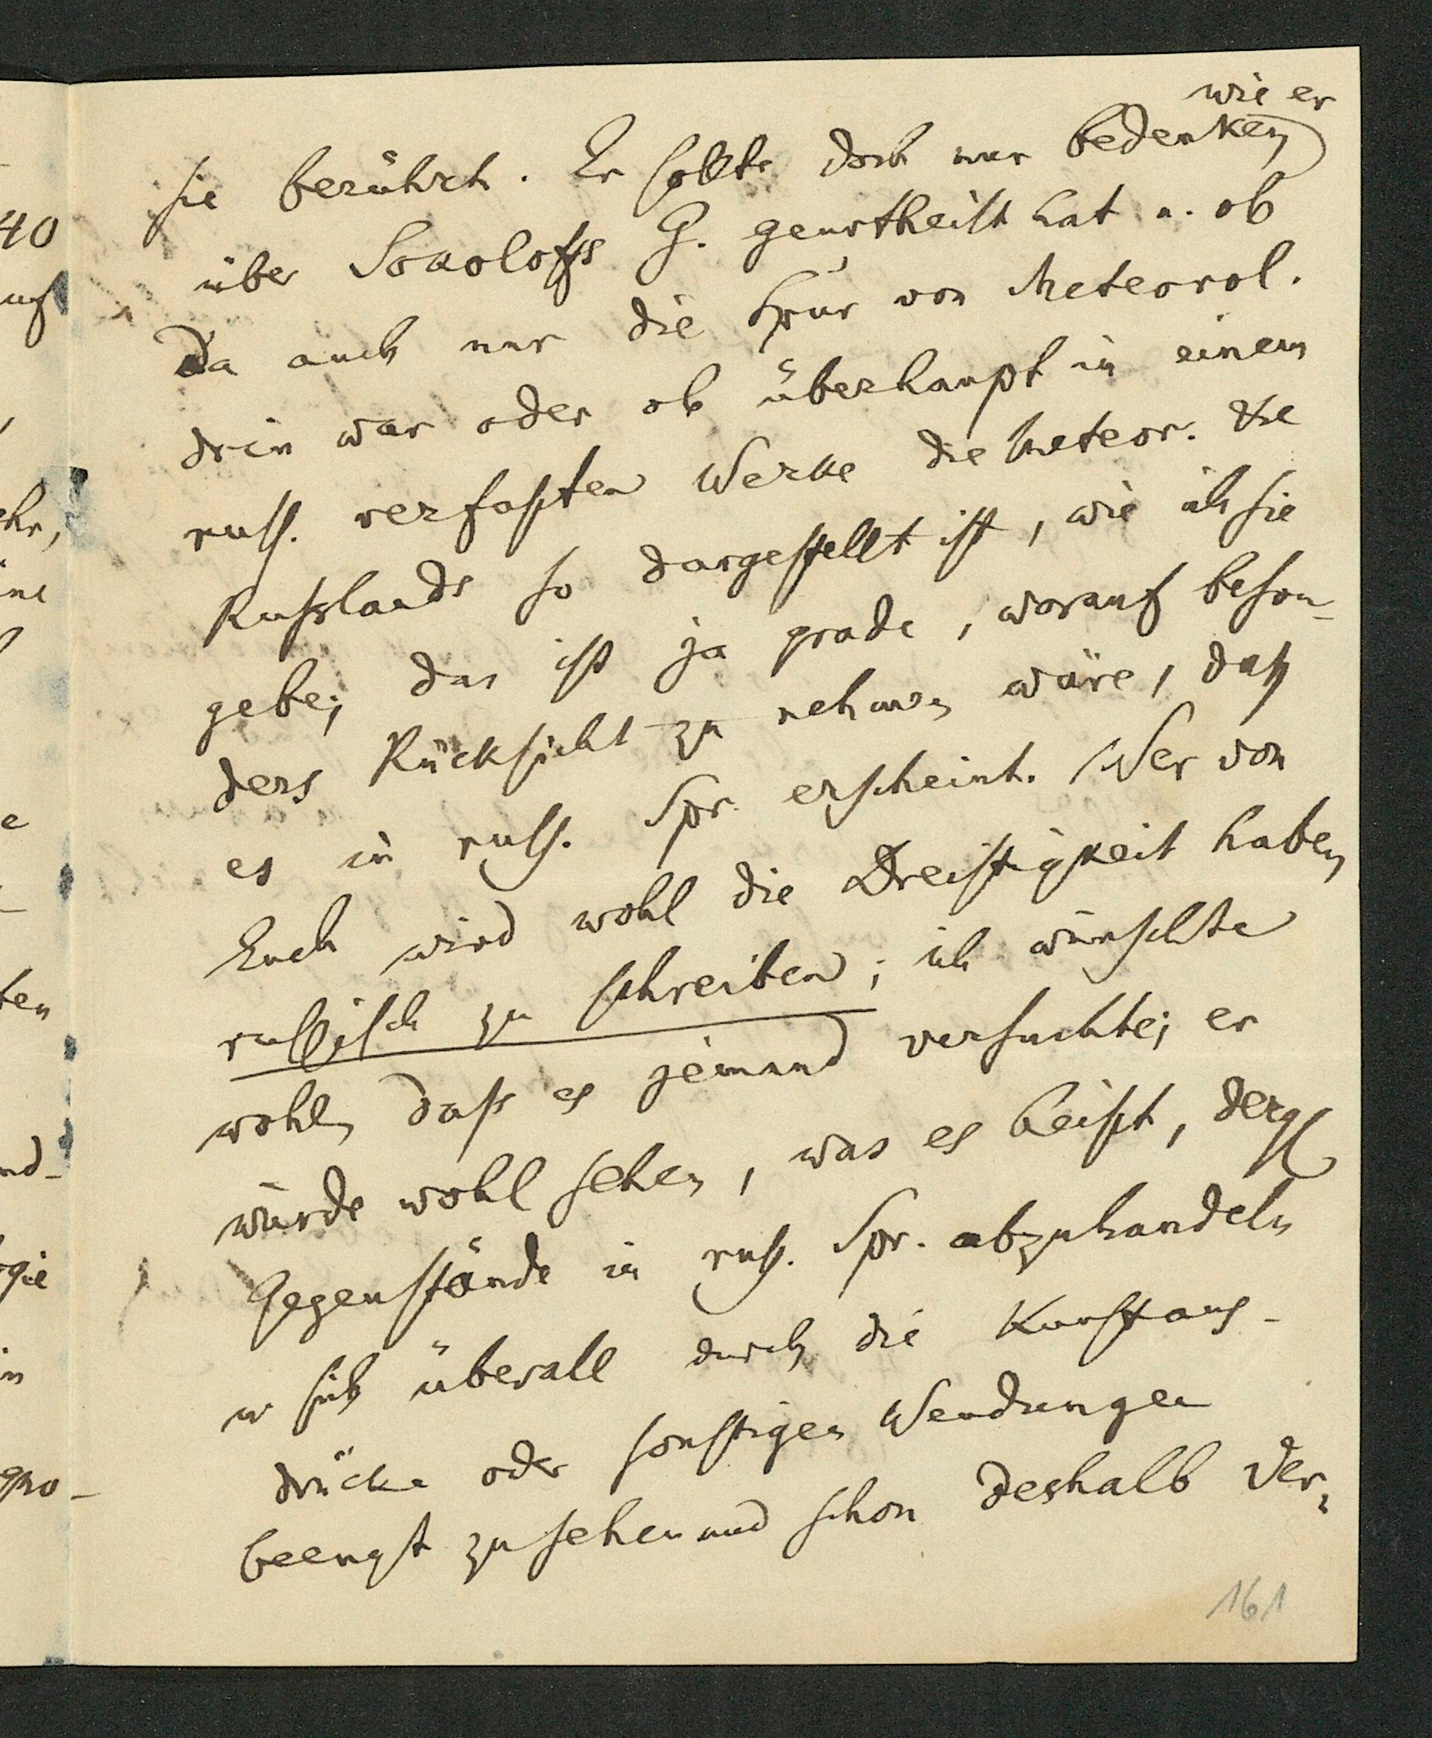 wie er
sie berührt. Er sollte doch nur bedenken
über Sokoloffs G. geurtheilt hat u. ob
Da auch nur die Spur von Meteorol.
drin war oder ob überhaupt in einem
russ. verfaßten Werke die Meteor.
Rußlands so dargestellt ist, wie ich sie
gebe; das ist ja grade, worauf beson-
ders Rücksicht zu nehmen wäre, daß
es in russ. Spr. erscheint. Wer von
Euch wird wohl die Dreistigkeit haben
russisch zu schreiben; ich wünschte
wohl, daß es jemand versuchte; er
würde wohl sehen, was es heißt, dergl
Gegenstände in russ. Spr. abzuhandeln
u sich überall durch die Kunstaus-
drücke oder sonstigen Wendungen
beengt zu sehen und schon deshalb ver-
161